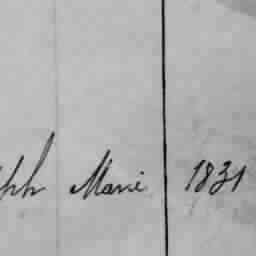 ph Marie 1831